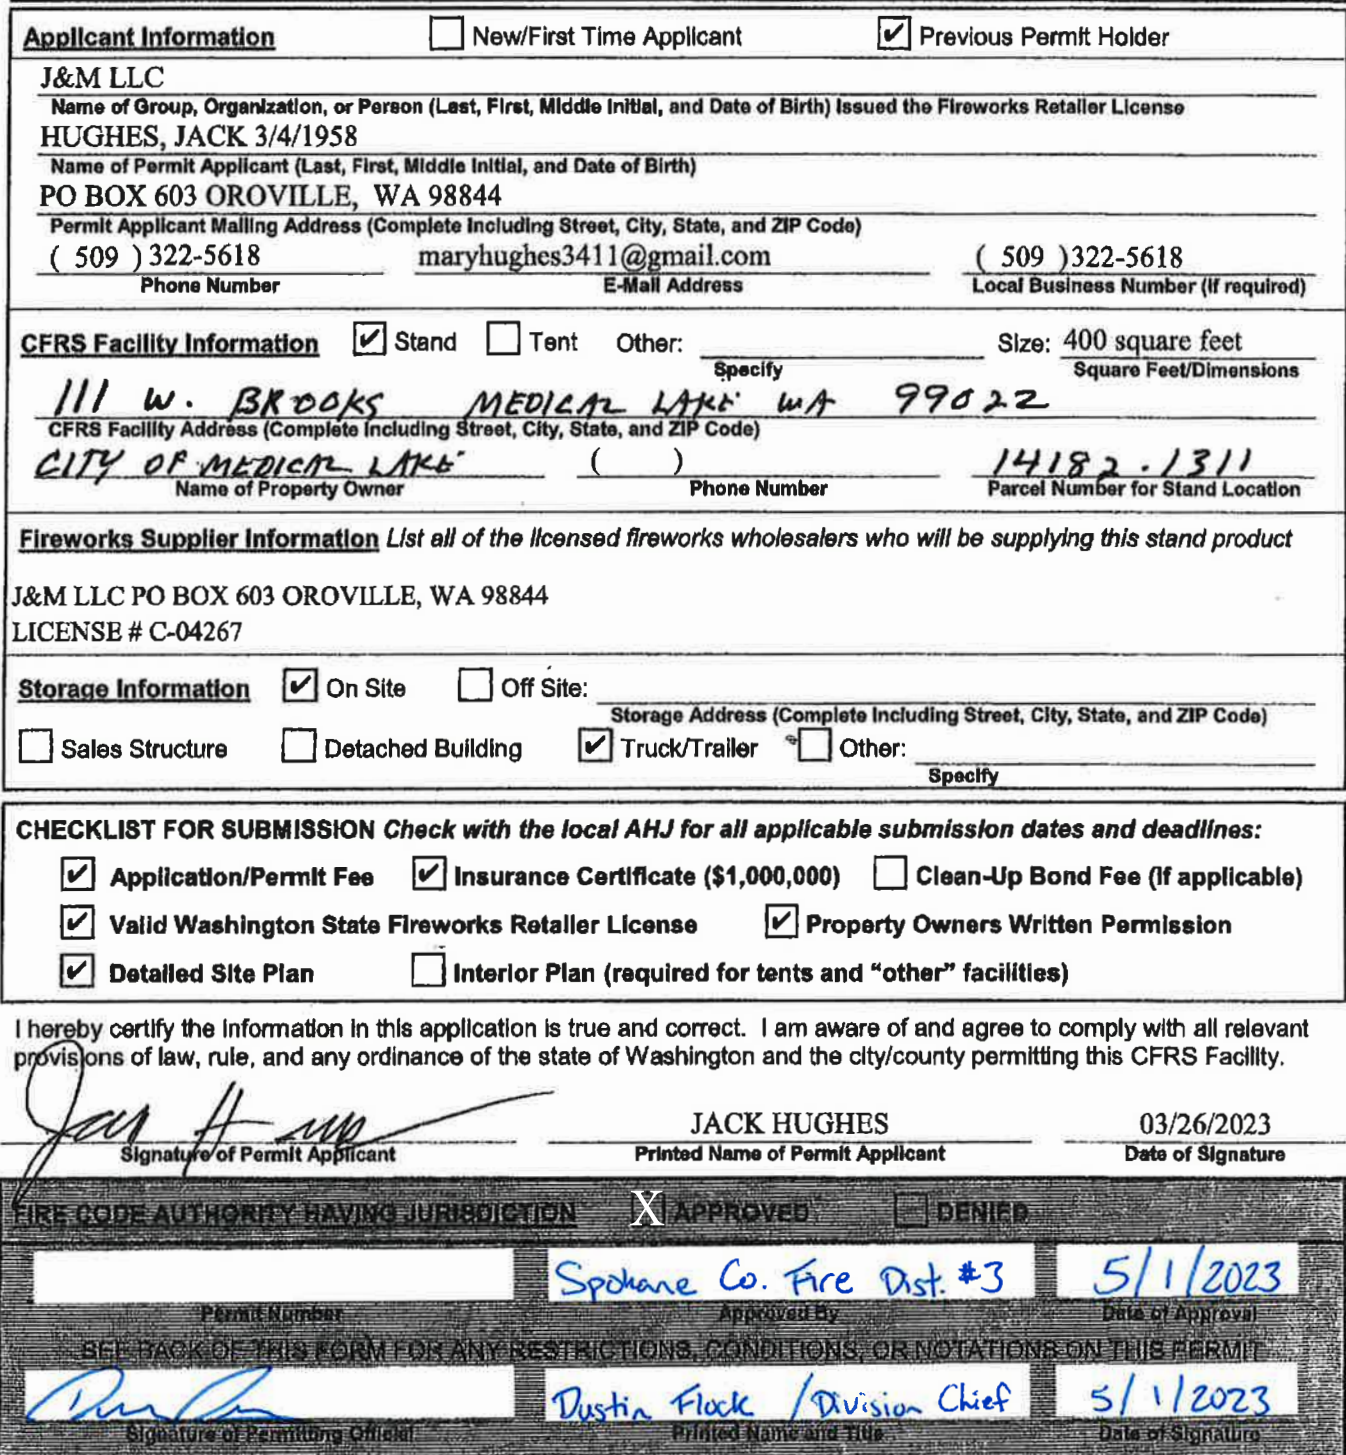 Applicant Information ☐ New/First Time Applicant ☑ Previous Permit Holder
J&M LLC
Name of Group, Organization, or Person (Last, First, Middle Initial, and Date of Birth) Issued the Fireworks Retailer License
HUGHES, JACK 3/4/1958
Name of Permit Applicant (Last, First, Middle Initial, and Date of Birth)
PO BOX 603 OROVILLE, WA 98844
Permit Applicant Mailing Address (Complete Including Street, City, State, and ZIP Code)
( 509 ) 322-5618 maryhughes3411@gmail.com ( 509 )322-5618
Phone Number E-Mail Address Local Business Number (if required)
CFRS Facility Information ☑ Stand ☐ Tent Other: Size: 400 square feet
Specify Square Feet/Dimensions
111 W. BROOKS MEDICAL LAKE WA 99022
CFRS Facility Address (Complete Including Street, City, State, and ZIP Code)
CITY OF MEDICAL LAKE ( ) 14182.1311
Name of Property Owner Phone Number Parcel Number for Stand Location
Fireworks Supplier Information List all of the licensed fireworks wholesalers who will be supplying this stand product
J&M LLC PO BOX 603 OROVILLE, WA 98844
LICENSE # C-04267
Storage Information ☑ On Site ☐ Off Site:
Storage Address (Complete Including Street, City, State, and ZIP Code)
☐ Sales Structure ☐ Detached Building ☑ Truck/Trailer ☐ Other:
Specify
CHECKLIST FOR SUBMISSION Check with the local AHJ for all applicable submission dates and deadlines:
☑ Application/Permit Fee ☑ Insurance Certificate ($1,000,000) ☐ Clean-Up Bond Fee (if applicable)
☑ Valid Washington State Fireworks Retailer License ☑ Property Owners Written Permission
☑ Detailed Site Plan ☐ Interior Plan (required for tents and "other" facilities)
I hereby certify the information in this application is true and correct. I am aware of and agree to comply with all relevant
provisions of law, rule, and any ordinance of the state of Washington and the city/county permitting this CFRS Facility.
JACK HUGHES 03/26/2023
Signature of Permit Applicant Printed Name of Permit Applicant Date of Signature
FIRE CODE AUTHORITY HAVING JURISDICTION X APPROVED ☐ DENIED
Spokane Co. Fire Dist. #3 5/1/2023
Permit Number Approved By Date of Approval
SEE BACK OF THIS FORM FOR ANY RESTRICTIONS, CONDITIONS, OR NOTATIONS ON THIS PERMIT
Dustin Flock / Division Chief 5/1/2023
Signature of Permitting Official Printed Name and Title Date of Signature